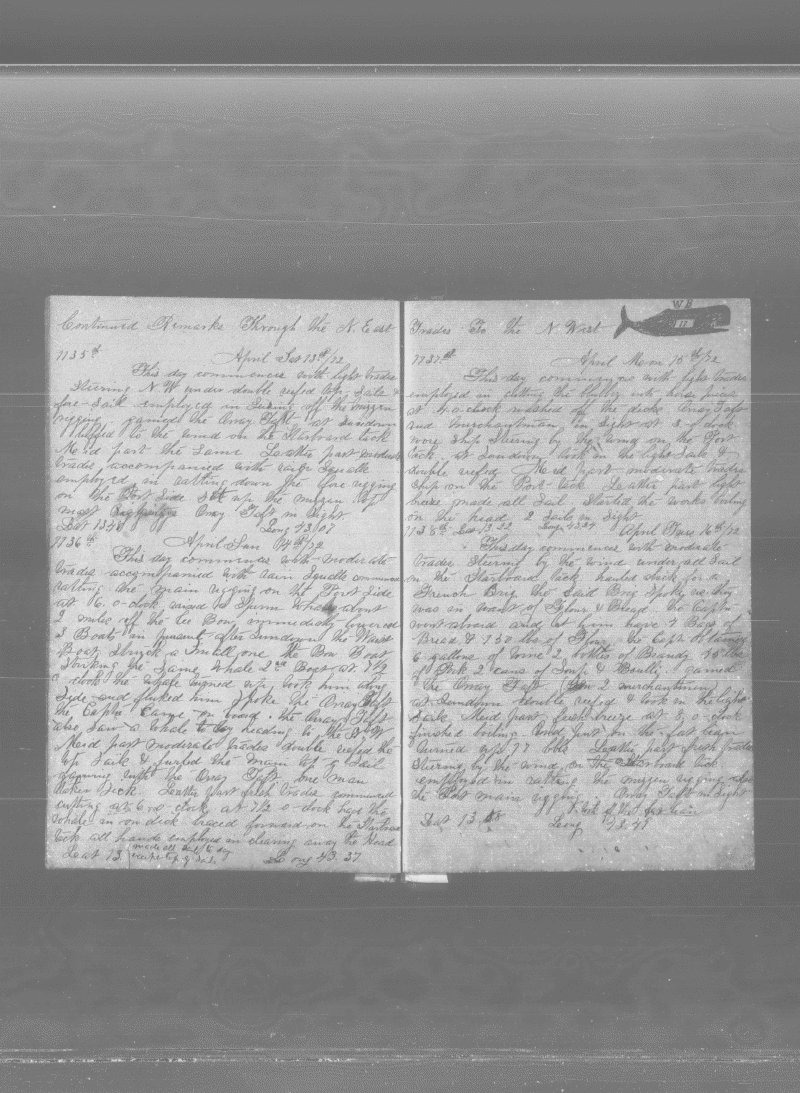 Continued Remarks Through the N. East
1135th April Sat 13th/72
This day commences with light trades
Steering N W under double reefed top Sails &
fore Sail employed in of the mizzen
rigging gamed the Oray Taft at Sundown
luffed to the wind on the Starboard tack
Meid part the Same Latter part moderate
trades accompanied with rain Squalls
employed in ratling down the fore rigging
on the Port Side up the mizen top
mast Oray Taft in Sight
Lat 13 Long 43 07
1136th April Sun 14th/72
This day commences with moderate
trades accompanied with rain Squalls commenced
ratling the main rigging on the Port Side
at 6. o-clock raised a Sperm Whale about
2 miles off the Lee Bow immediately lowered
3 Boats in pursuit after Sundown the Waist
Boat Struck a Small one the Bow Boat
Striking the Same Whale 2nd Boat at 7 1/2
o clock the whale turned up took him along
Side and fluked him Spoke the Oray Taft
the Captn Came on board. the Oray Taft
also Saw a whale to day heading to the N. W
Meid part moderate trades double reefed the
top Sails & furled the main at
with the Oray Taft one man
Sick. Latter part fresh trades commenced
cutting at 6 o clock at 7 1/2 o clock had the
whale in on deck braced forward on the Starboard
tack all hands employed in clearing away the head
Lat 13 made all Sail to day Long 43. 37
Trades To the N. West
W B
11
1137th April Mon 15th/72
This day commences with light trades
employed in cutting the Blubber into horse pieces
at 4 o-clock washed of the decks Oray Taft
and merchantman in Sight at 5 o clock
wore Ship Steering by the wind on the Port
tack. at Sundown took in the light Sails &
double reefed Meid part moderate trades
Ship on the Port tack Latter part light
breeze made all Sail Started the works boiling
on the head 2 Sails in Sight
Lat 13. 22 Long 43.34
1138th April Tues 16th/72
This day commences with moderate
trades Steering by the wind under all Sail
on the Starboard tack hauled aback for a
French Brig the Said Brig Spoke us they
was in want of Flour & Bread the Captn
went aboard and let him have 4 Bbls of
Bread & 150 lbs of Flour the Capt
6 gallons of wine 2 bottles of Brandy
of Pork 2 cans of Soup & Boulli gamed
the Oray Taft Saw 2 merchantmen
at Sundown double reefed & took in the light
Sails Meid part fresh breeze at 8. o-clock
finished boiling and put on the fat lean
turned up 77 bbls Latter part fresh trades
Steering by the wind on the Starboard tack
employed in ratling the mizen rigging also
the Port main rigging Oray Taft in Sight
Lat 13. Long 43. 41